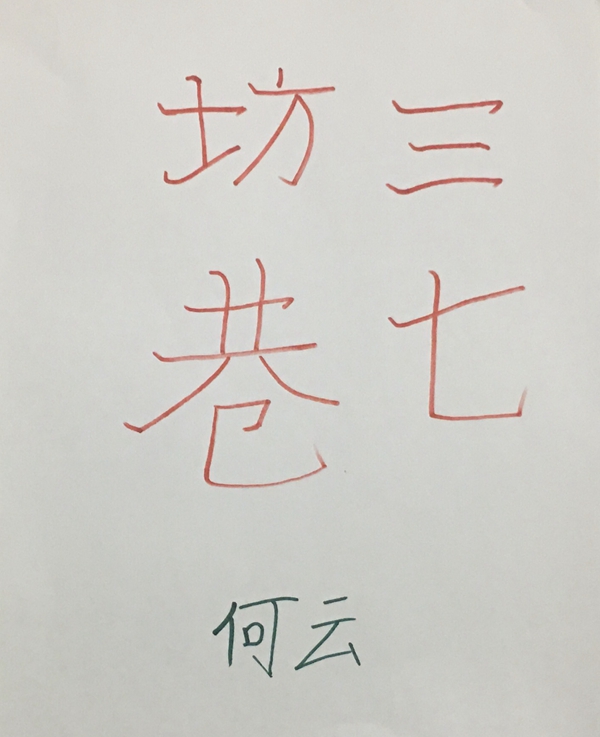 三坊
七巷
何云